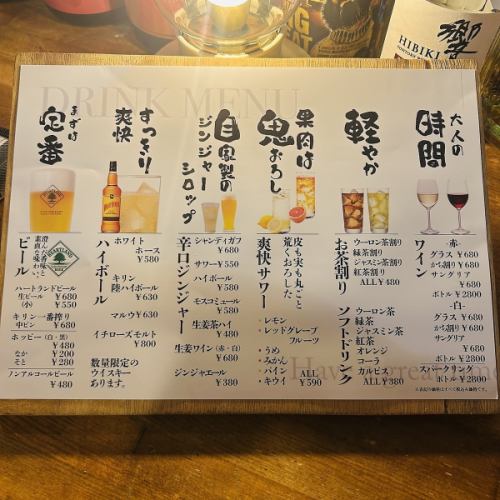 響
HIBIKI
DRINK MENU
まずは
定番
HEARTLAND
澄んだ香味と
素直な味わい
ビール
ハートランドビール
生ビール ¥680
(小) ¥550
キリン一番搾り
中ビン ¥680
ホッピー(白・黒)
¥480
なか ¥200
そと ¥280
ノンアルコールビール
¥480
すっきり
爽快
ハイボール
ホワイト
ホース
¥580
キリン
陸ハイボール
¥630
マルウヰ ¥630
イチローズモルト
¥800
数量限定の
ウイスキー
あります。
自家製の
ジンジャー
シロップ
辛口ジンジャー
シャンディガフ
¥680
サワー ¥550
ハイボール
¥580
モスコミュール
¥580
生姜茶ハイ
¥480
生姜ワイン(赤・白)
¥680
ジンジャエール
¥380
果肉は
鬼おろし
爽快サワー
皮も実も丸ごと
荒くおろした
・レモン
・レッドグレープ
フルーツ
・うめ
・みかん
・パイン
・キウイ
ALL
¥590
軽やか
お茶割り
ウーロン茶割り
緑茶割り
ジャスミン茶割り
紅茶割り
ALL ¥480
ソフトドリンク
ウーロン茶
緑茶
ジャスミン茶
紅茶
オレンジ
コーラ
カルピス
ALL ¥380
大人の
時間
ワイン
-赤-
グラス ¥680
かち割り ¥680
サングリア
¥680
ボトル ¥2800
-白-
グラス ¥680
かち割り ¥680
サングリア
¥680
ボトル ¥2800
スパークリング
ボトル ¥2800